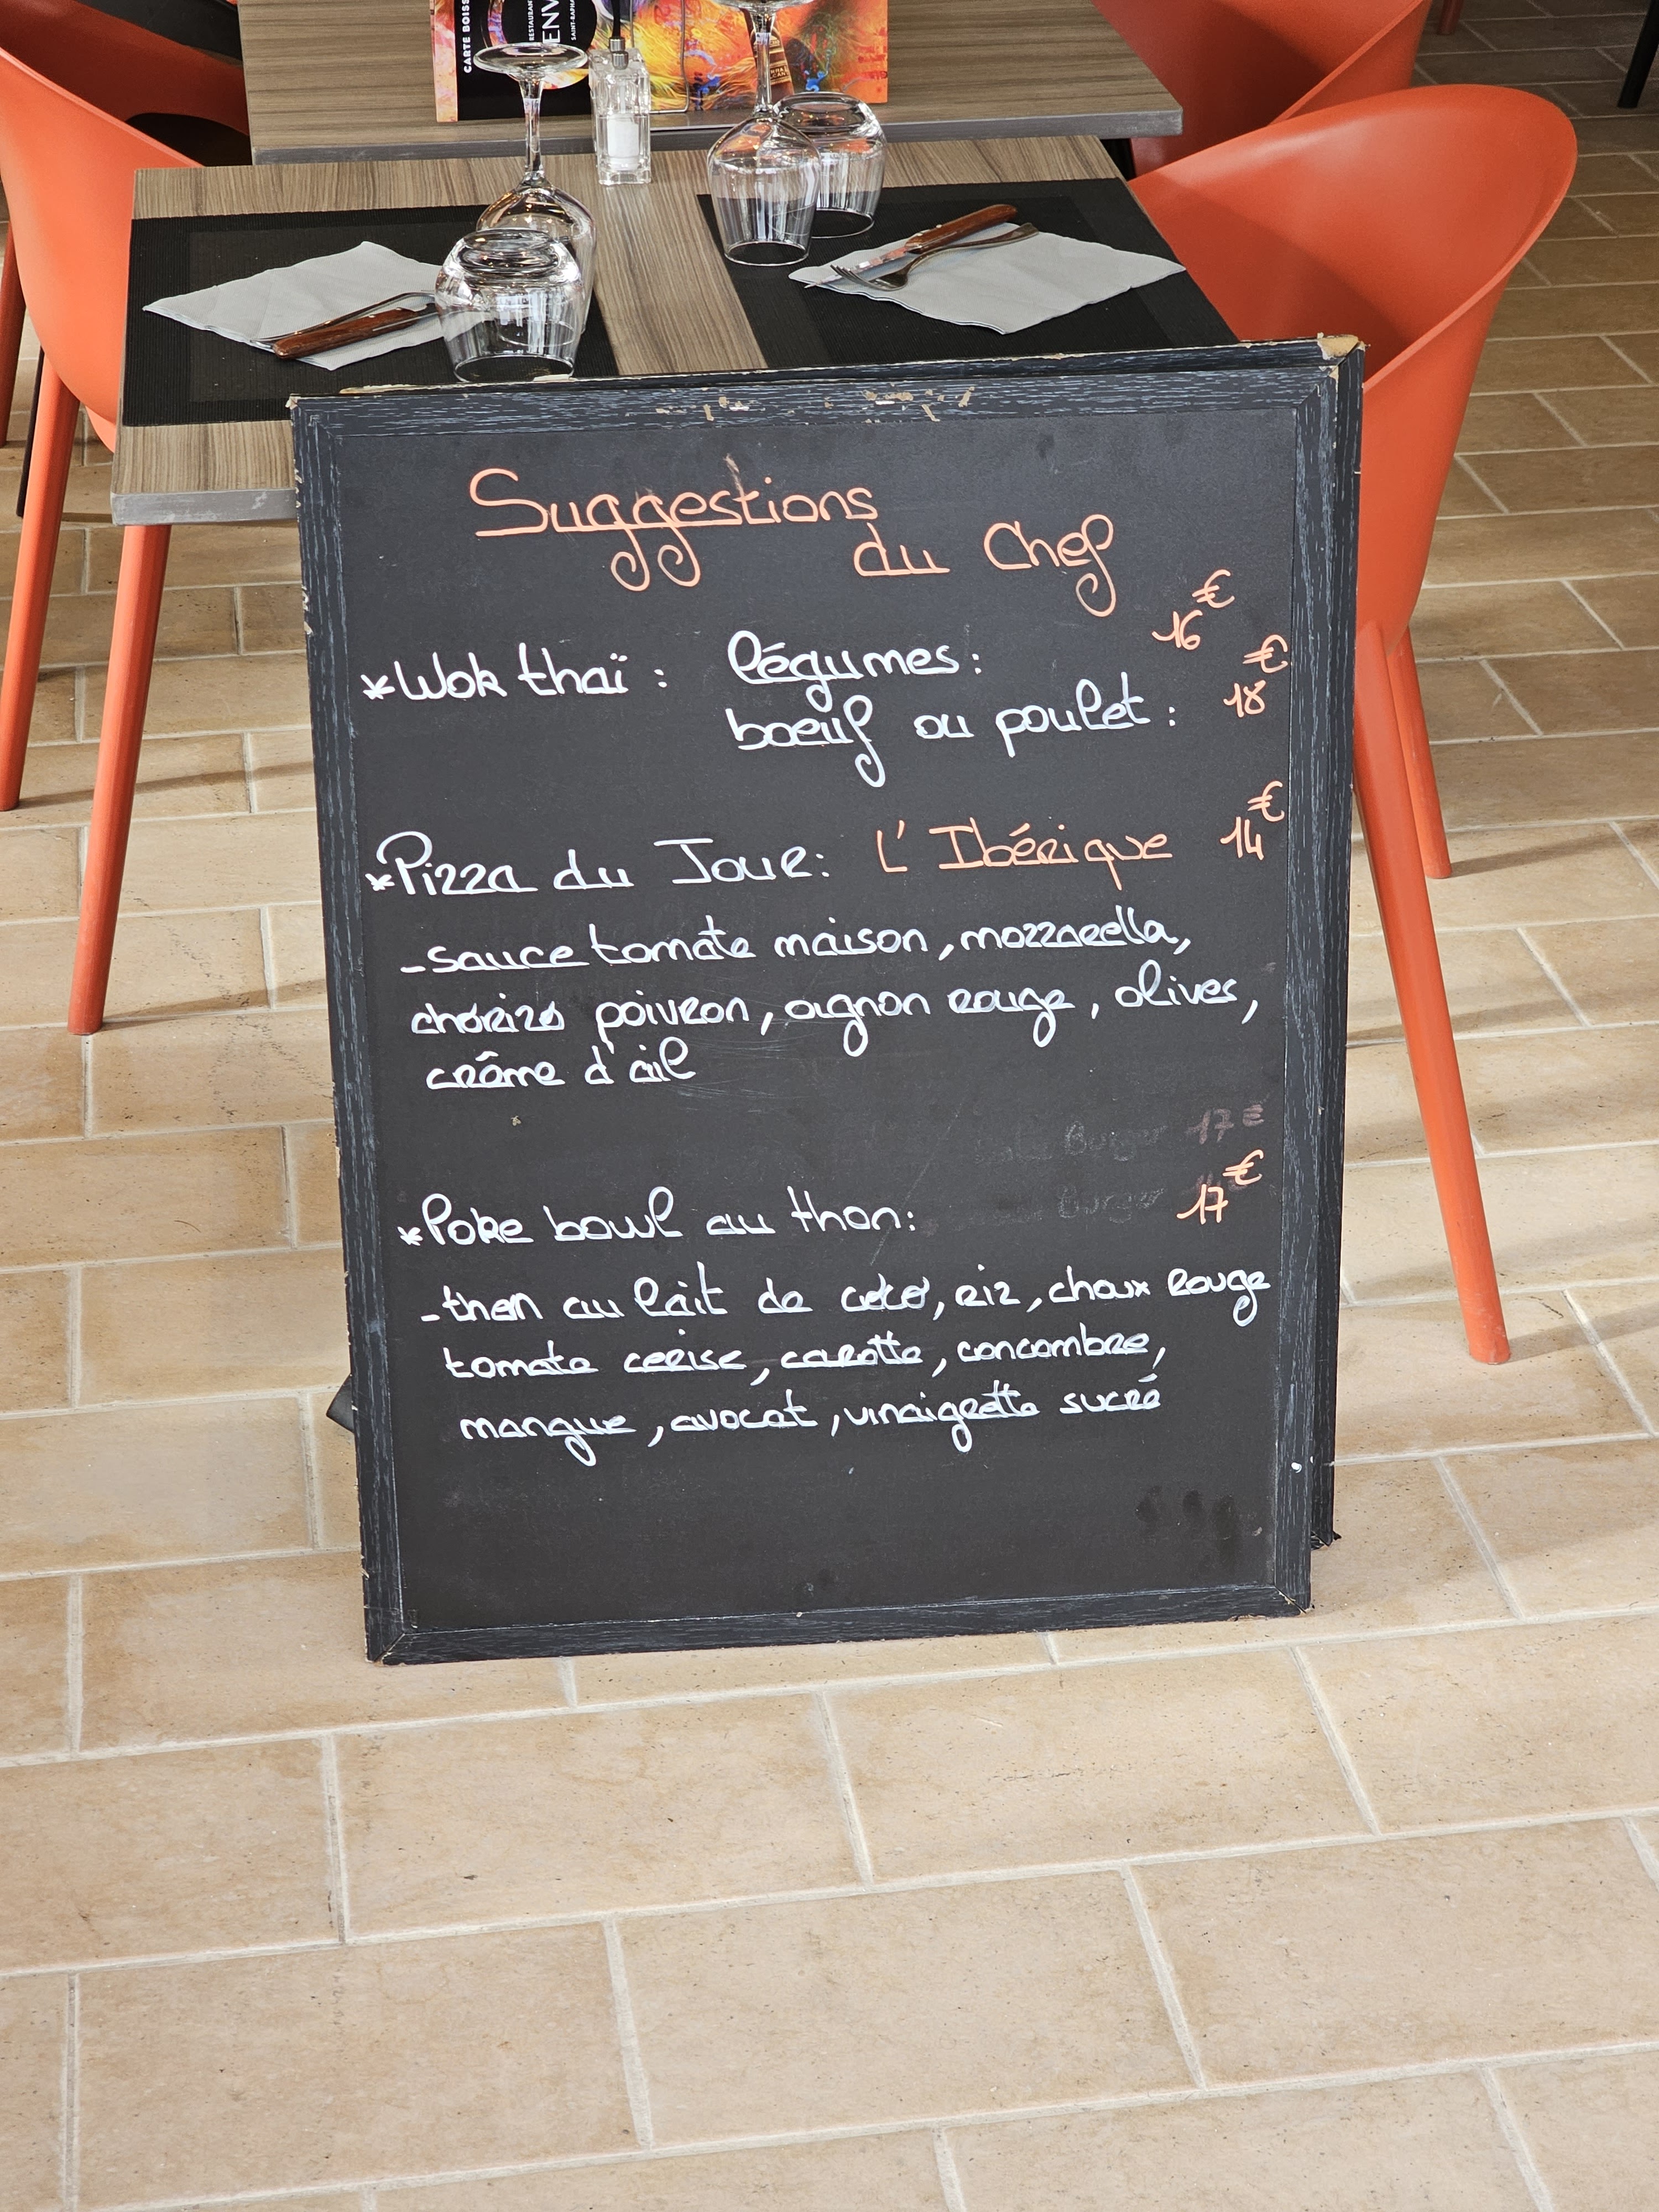 CARTE BOISS
RESTAURANT
ENV
SAINT-RAPHA
Suggestions
du Chef
*Wok thaï : légumes: 16€
boeuf ou poulet : 18€
*Pizza du Jour: L'Ibérique 14€
-sauce tomate maison, mozzarella,
chorizo poivron, oignon rouge, olives,
crème d'ail
Burger 17€
Burger
*Poke bowl au thon: 17€
-thon au lait de coco, riz, choux rouge
tomate cerise, carotte, concombre,
mangue, avocat, vinaigrette sucré